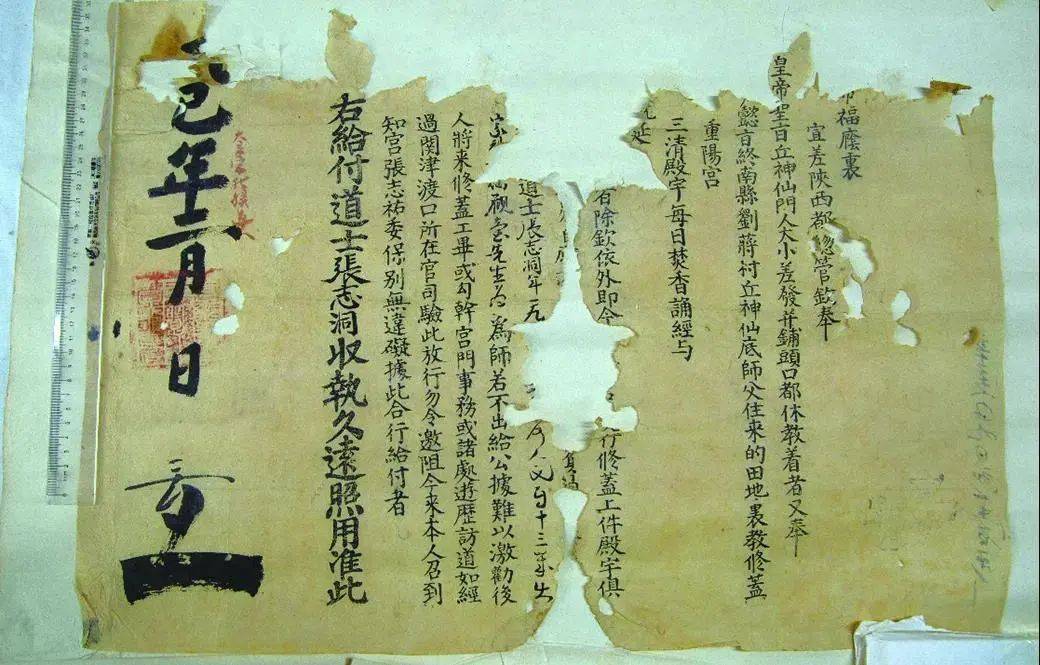 帝福廕裏
宣差陝西都總管欽奉
皇帝聖旨丘神仙門人大小差發并鋪頭口都休教着者又奉
懿旨終南縣劉蔣村丘神仙底師父住來的田地裏教修蓋
重陽宮
三清殿宇每日焚香誦經与
延
有除欽依外即令 行修蓋上件殿宇俱
道士張志洞年一 十三歲出
先生為 為師若不出給公據難以激勸後
人將來修蓋工畢或勾幹宮門事務或諸處遊歷訪道如經
過関津渡口所在官司驗此放行勿令邀阻今來本人召到
知宮張志祐委保別無違礙據此合行給付者
右給付道士張志洞收執久遠照用准此
巳年二月 日